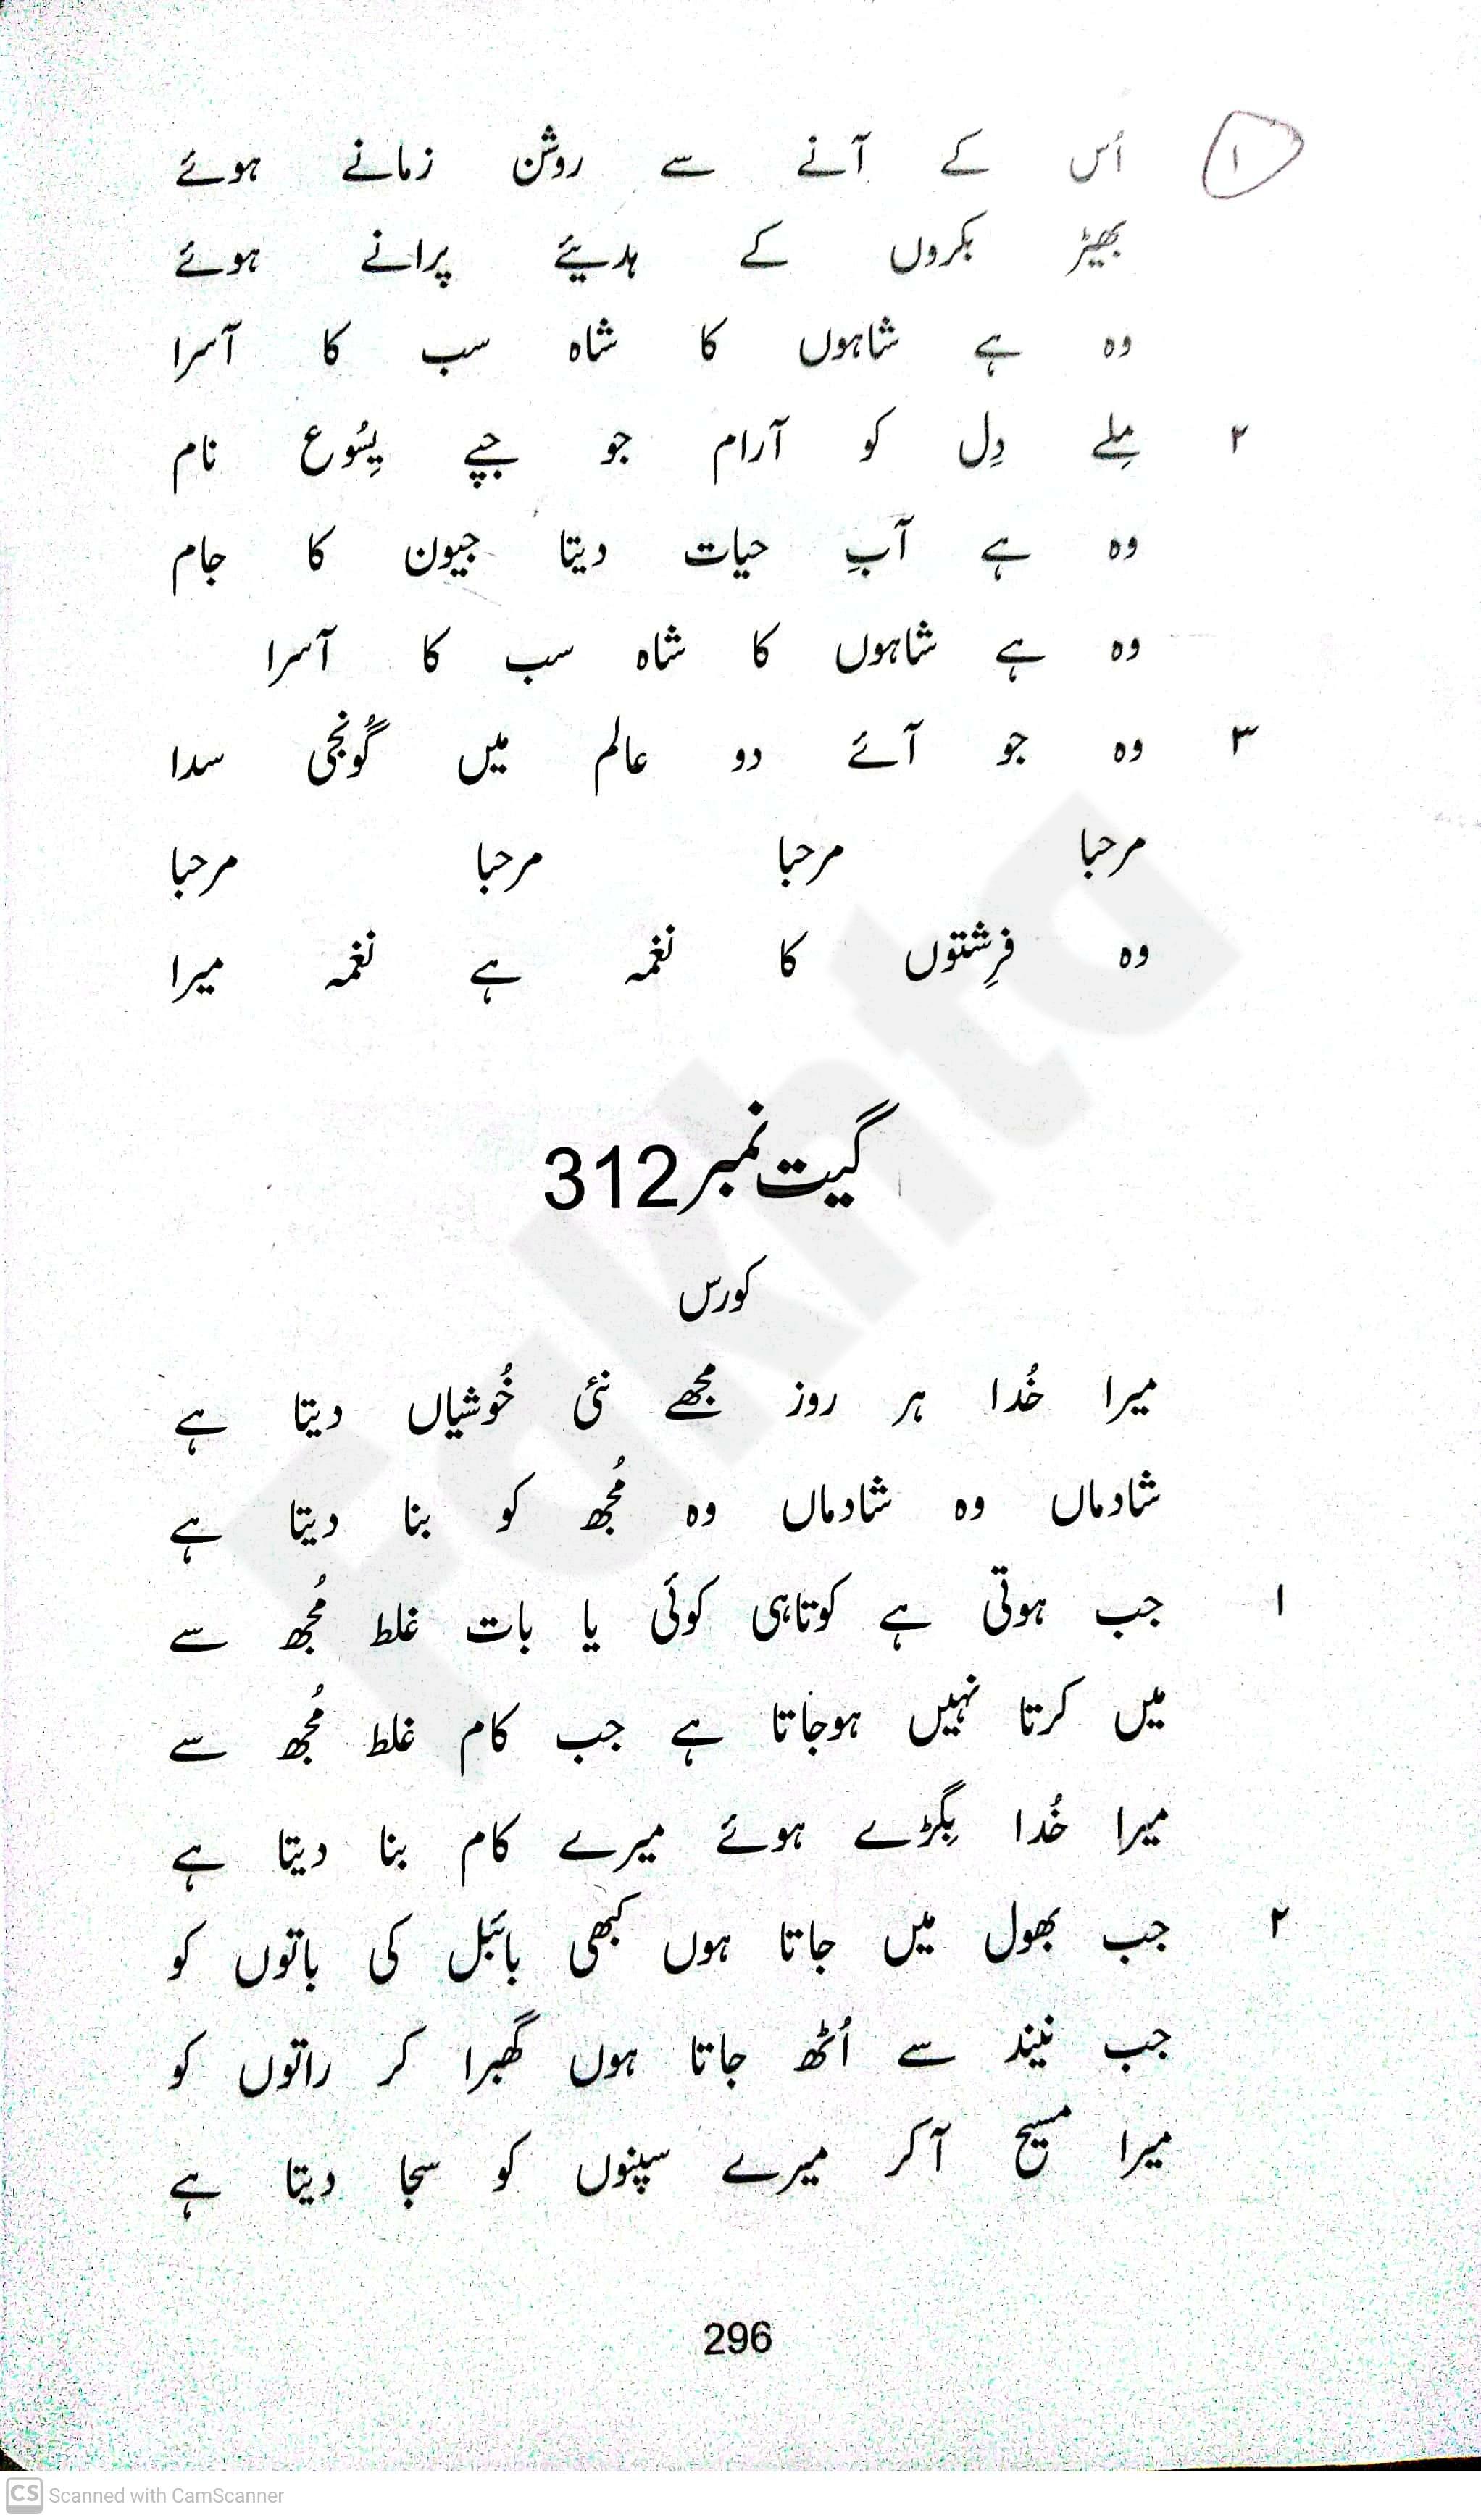 ۱ اُس کے آنے سے روشن زمانے ہوئے
بھیڑ بکروں کے ہدیئے پرانے ہوئے
وہ ہے شاہوں کا شاہ سب کا آسرا
۲ مِلے دِل کو آرام جو جپے یِسُوع نام
وہ ہے آبِ حیات دیتا جیون کا جام
وہ ہے شاہوں کا شاہ سب کا آسرا
۳ وہ جو آئے دو عالم میں گُونجی سدا
مرحبا مرحبا مرحبا مرحبا
وہ فرِشتوں کا نغمہ ہے نغمہ میرا
گیت نمبر 312
کورس
میرا خُدا ہر روز مجھے نئی خُوشیاں دیتا ہے
شادماں وہ شادماں وہ مُجھ کو بنا دیتا ہے
۱ جب ہوتی ہے کوتاہی کوئی یا بات غلط مُجھ سے
میں کرتا نہیں ہوجاتا ہے جب کام غلط مُجھ سے
میرا خُدا بِگڑے ہوئے میرے کام بنا دیتا ہے
۲ جب بھول میں جاتا ہوں کبھی بائبل کی باتوں کو
جب نیند سے اُٹھ جاتا ہوں گھبرا کر راتوں کو
میرا مسیح آکر میرے سپنوں کو سجا دیتا ہے
296
Fakhta
CS Scanned with CamScanner